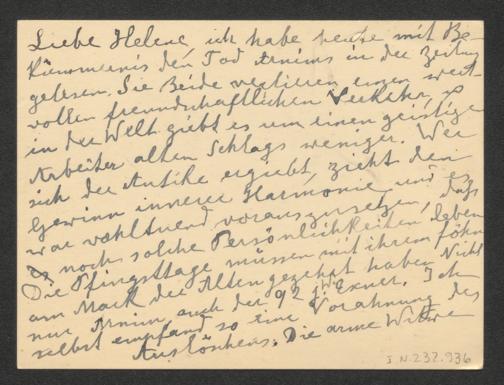 Liebe Helene, ich habe heute mit Be-
kümmernis den Tod Arnims in der Zeitung
gelesen. Sie Beide verlieren einen wert-
vollen freundschaftlichen Verkehr, &
in der Welt giebt es um einen geistigen
Arbeiter alten Schlags weniger. Wer
sich der Antike ergiebt, zieht den
Gewinn innerer Harmonie, und es
war wohltuend vorauszusetzen, daß
noch solche Persönlichkeiten leben
Die Pfingsttage müssen mit ihrem Föhn
am Mark der Alten gezehrt haben Nicht
nur Arnim, auch der 92 j. Exner. Ich
selbst empfand so eine Vorahnung des
Auslöschens. Die arme Witwe
I.N. 232.936